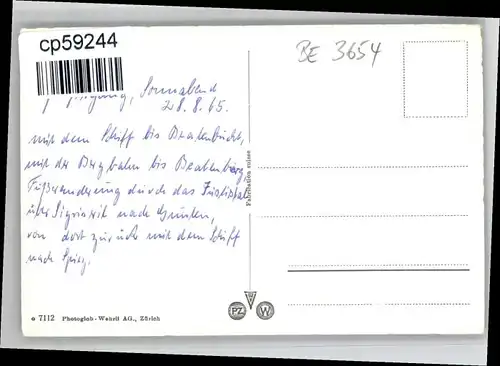 cp59244
BE 3654
Sonnabend
28.8.65.
mit dem Schiff bis Beatenbucht,
mit der Bergbahn bis Beatenberg
Fußwanderung durch das Justistal
über Sigriswil nach Gunten,
von dort zurück mit dem Schiff
nach Spiez.
Fabrication suisse
PZ W
7112 Photoglob-Wehrli AG., Zürich